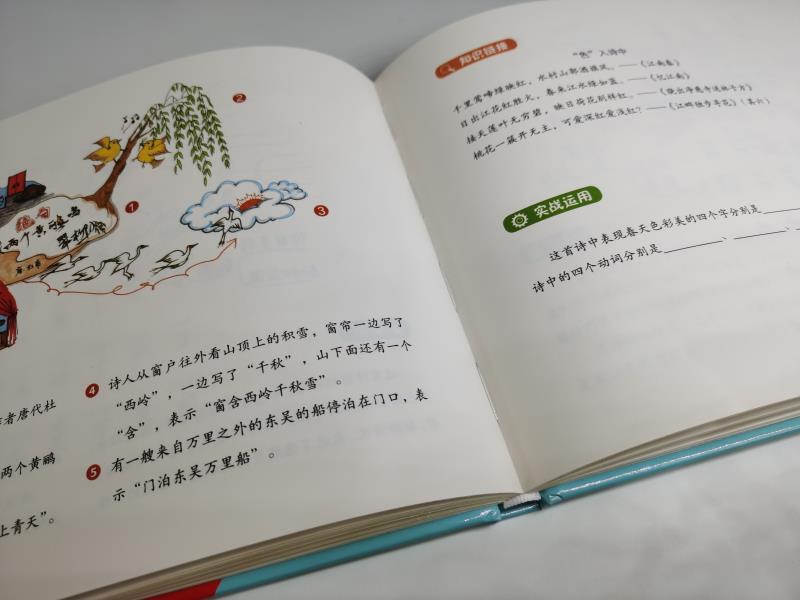 ②
①
绝句
两个黄鹂鸣
翠柳
③
者唐代杜
两个黄鹂
上青天”。
④ 诗人从窗户往外看山顶上的积雪，窗帘一边写了
“西岭”，一边写了“千秋”，山下面还有一个
“含”，表示“窗含西岭千秋雪”。
⑤ 有一艘来自万里之外的东吴的船停泊在门口，表
示“门泊东吴万里船”。
知识链接
“色”入诗中
千里莺啼绿映红，水村山郭酒旗风。——《江南春》
日出江花红胜火，春来江水绿如蓝。——《忆江南》
接天莲叶无穷碧，映日荷花别样红。——《晓出净慈寺送林子方》
桃花一簇开无主，可爱深红爱浅红？——《江畔独步寻花》（其六）
实战运用
这首诗中表现春天色彩美的四个字分别是
诗中的四个动词分别是________、________、